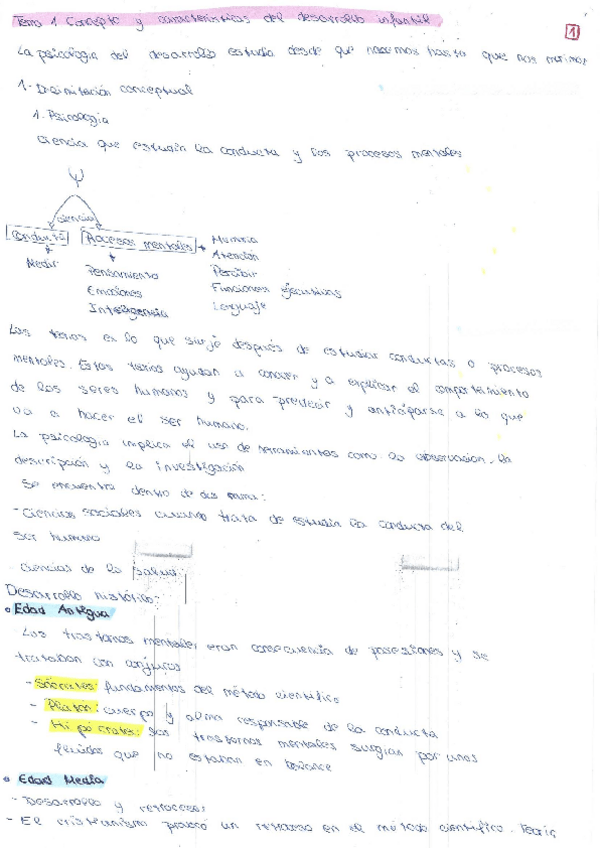 Tema 1. Concepto y características del desarrollo infantil
1
La psicología del desarrollo estudia desde que nacemos hasta que nos morimos
1- Delimitación conceptual
1. Psicología
Ciencia que estudia la conducta y los procesos mentales
ψ
ciencia
Conducta Procesos mentales → Memoria
Medir
Atención
Pensamiento
Percibir
Emociones
Funciones ejecutivas
Inteligencia
Lenguaje
Las en lo que surje después de estudiar conductas o procesos
mentales. Estas ayudan a conocer y a explicar el comportamiento
de los seres humanos y para predecir y anticiparse a lo que
va a hacer el ser humano.
La psicología implica el uso de herramientas como la observación, la
descripción y la investigación
Se encuentra dentro de dos :
- Ciencias sociales cuando trata de estudiar la conducta del
ser humano
- Ciencias de la salud
Desarrollo histórico:
• Edad Antigua
Los trastornos mentales eran consecuencia de posesiones y se
trataban con conjuros
- Sócrates: fundamentos del método científico
- Platón: cuerpo y alma responsable de la conducta
- Hipócrates: los trastornos mentales surgían por unos
fluidos que no estaban en balance
• Edad Media
- Desarrollo y retroceso
- El cristianismo provocó un retraso en el método científico. Teoría